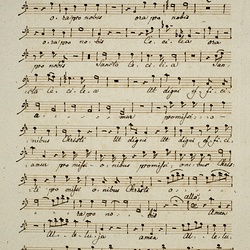 ora pro nobis ora pro nobis
ora pro nobis Cecilia ora
pro nobis Sancta Cecilia San-
cta Cecilia Ut digni effici-
amur promissi-
onibus Christi Ut digni effici-
amur promissionibus promissionibus Christi
Ut promissionibus Christi
ora pro nobis Amen
Alleluja amen Allelu-